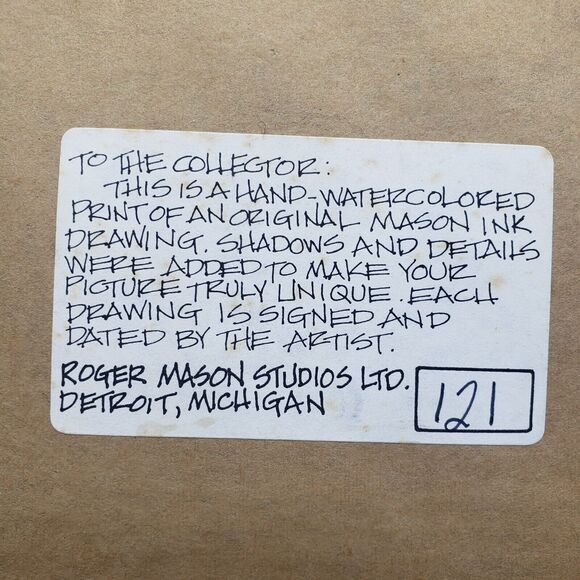 TO THE COLLECTOR:
THIS IS A HAND-WATERCOLORED
PRINT OF AN ORIGINAL MASON INK
DRAWING. SHADOWS AND DETAILS
WERE ADDED TO MAKE YOUR
PICTURE TRULY UNIQUE. EACH
DRAWING IS SIGNED AND
DATED BY THE ARTIST.
ROGER MASON STUDIOS LTD.
DETROIT, MICHIGAN
121